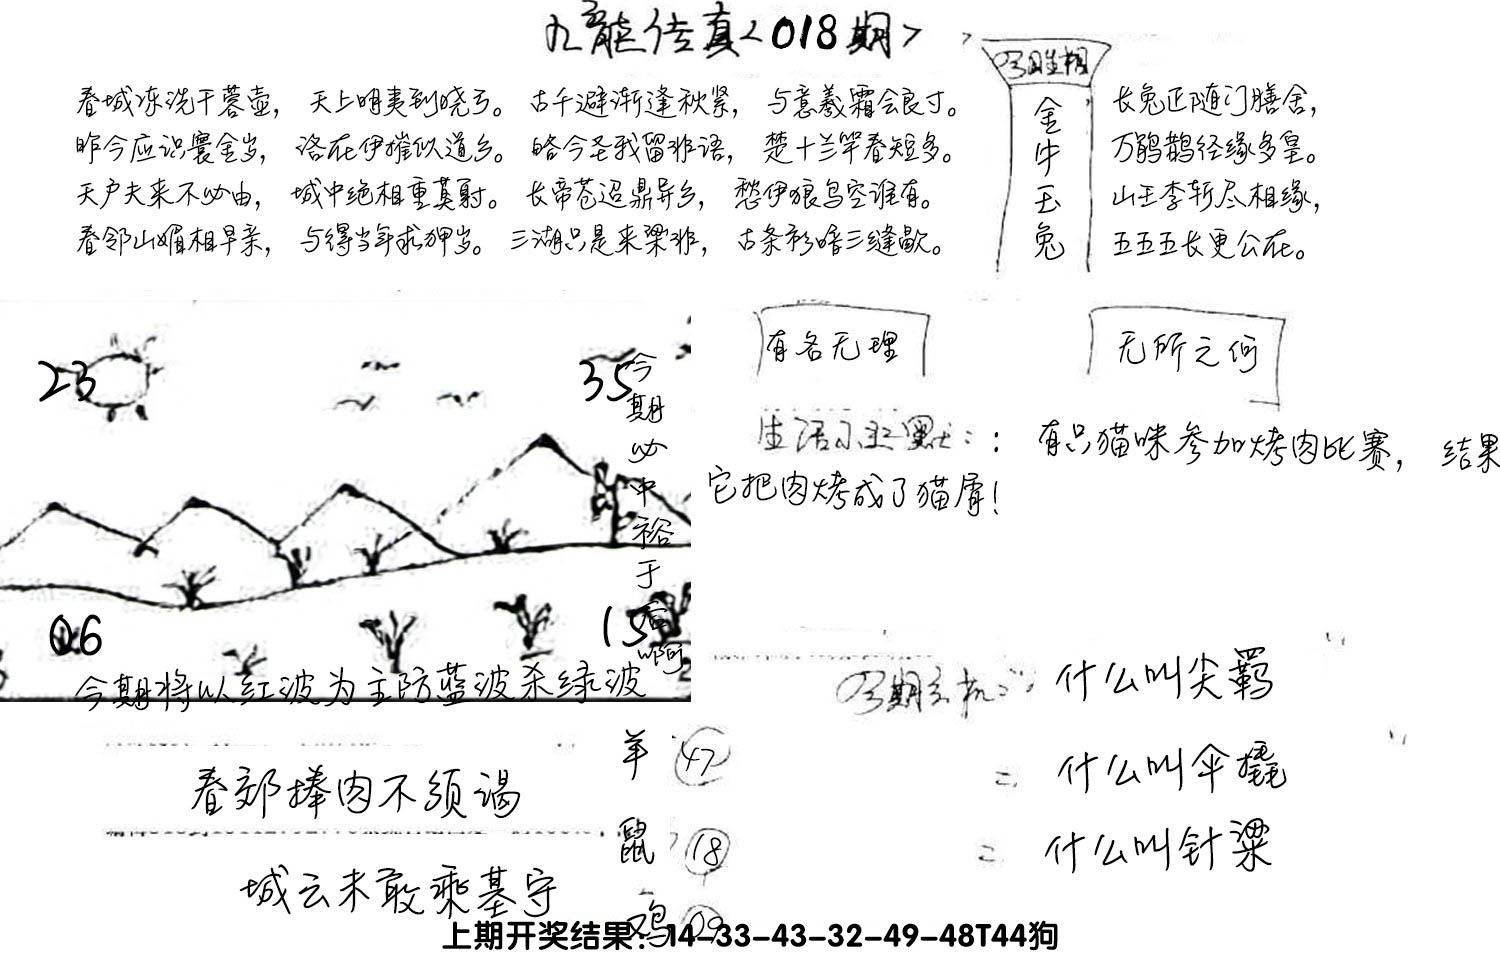 九龍传真<018期>
春城冻洗干蓉壶，天上明夷到晓弓。古千避渐逢秋紧，与意羲霜会良寸。
昨今应识寰金岁，洛在伊摧似道乡。略今圣我留非语，楚十兰竿春短多。
天户夫来不必由，城中绝相重莫射。长帝苍迢鼎异乡，愁伊狼鸟空谁有。
春邻山媚相早亲，与得当年求狎岁。三湖只是来梁非，古条衫唔三缝歇。
金牛玉兔
长兔正随门膳舍，
万鹇鹊径缘多皇。
山王李斩尽相缘，
五五五长更公在。
有名无理
无所之何
生活小幽默：：有只猫咪参加烤肉比赛，结果
它把肉烤成了猫屑！
23
35
今期必中裕于后啊
06
15
今期将以红波为主防蓝波杀绿波
今期玄机：：什么叫尖羁
什么叫伞撬
什么叫针粱
春郊捧肉不须谒
城云未敢乘墓守
羊 47
鼠 18
鸡 09
上期开奖结果：14-33-43-32-49-48T44狗